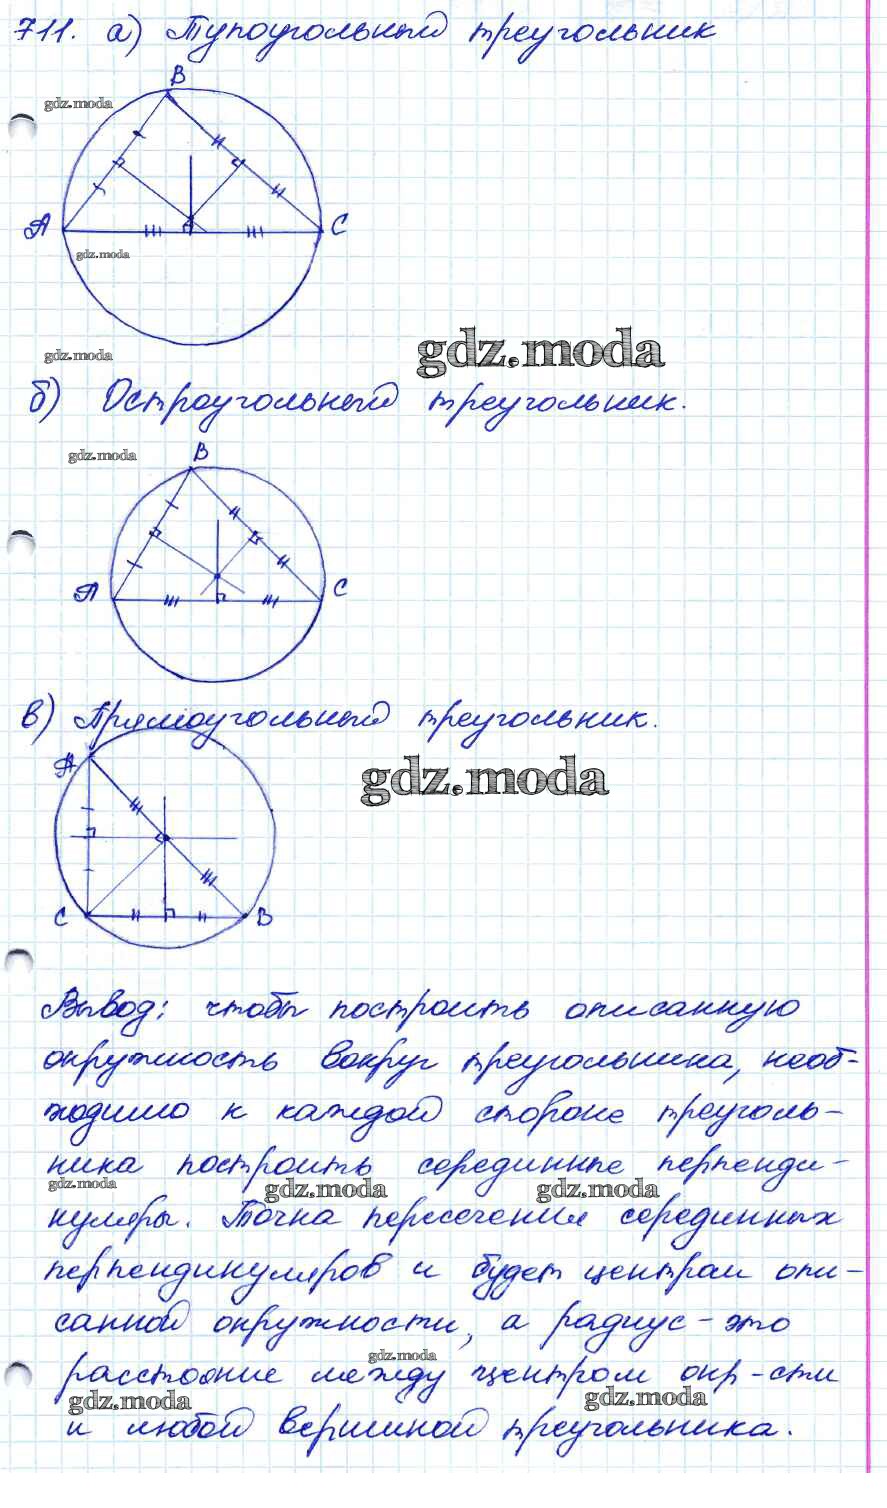 711. а) Тупоугольный треугольник
B
gdz.moda
A
C
gdz.moda
gdz.moda
gdz.moda
б) Остроугольный треугольник.
gdz.moda
B
A
C
в) Прямоугольный треугольник.
A
gdz.moda
C
B
Вывод: чтобы построить описанную
окружность вокруг треугольника, необ-
ходимо к каждой стороне треуголь-
ника построить серединные перпенди-
gdz.moda gdz.moda gdz.moda
куляры. Точка пересечения серединных
перпендикуляров и будет центром опи-
санной окружности, а радиус - это
gdz.moda
расстояние между центром окр-сти
gdz.moda gdz.moda
и любой вершиной треугольника.